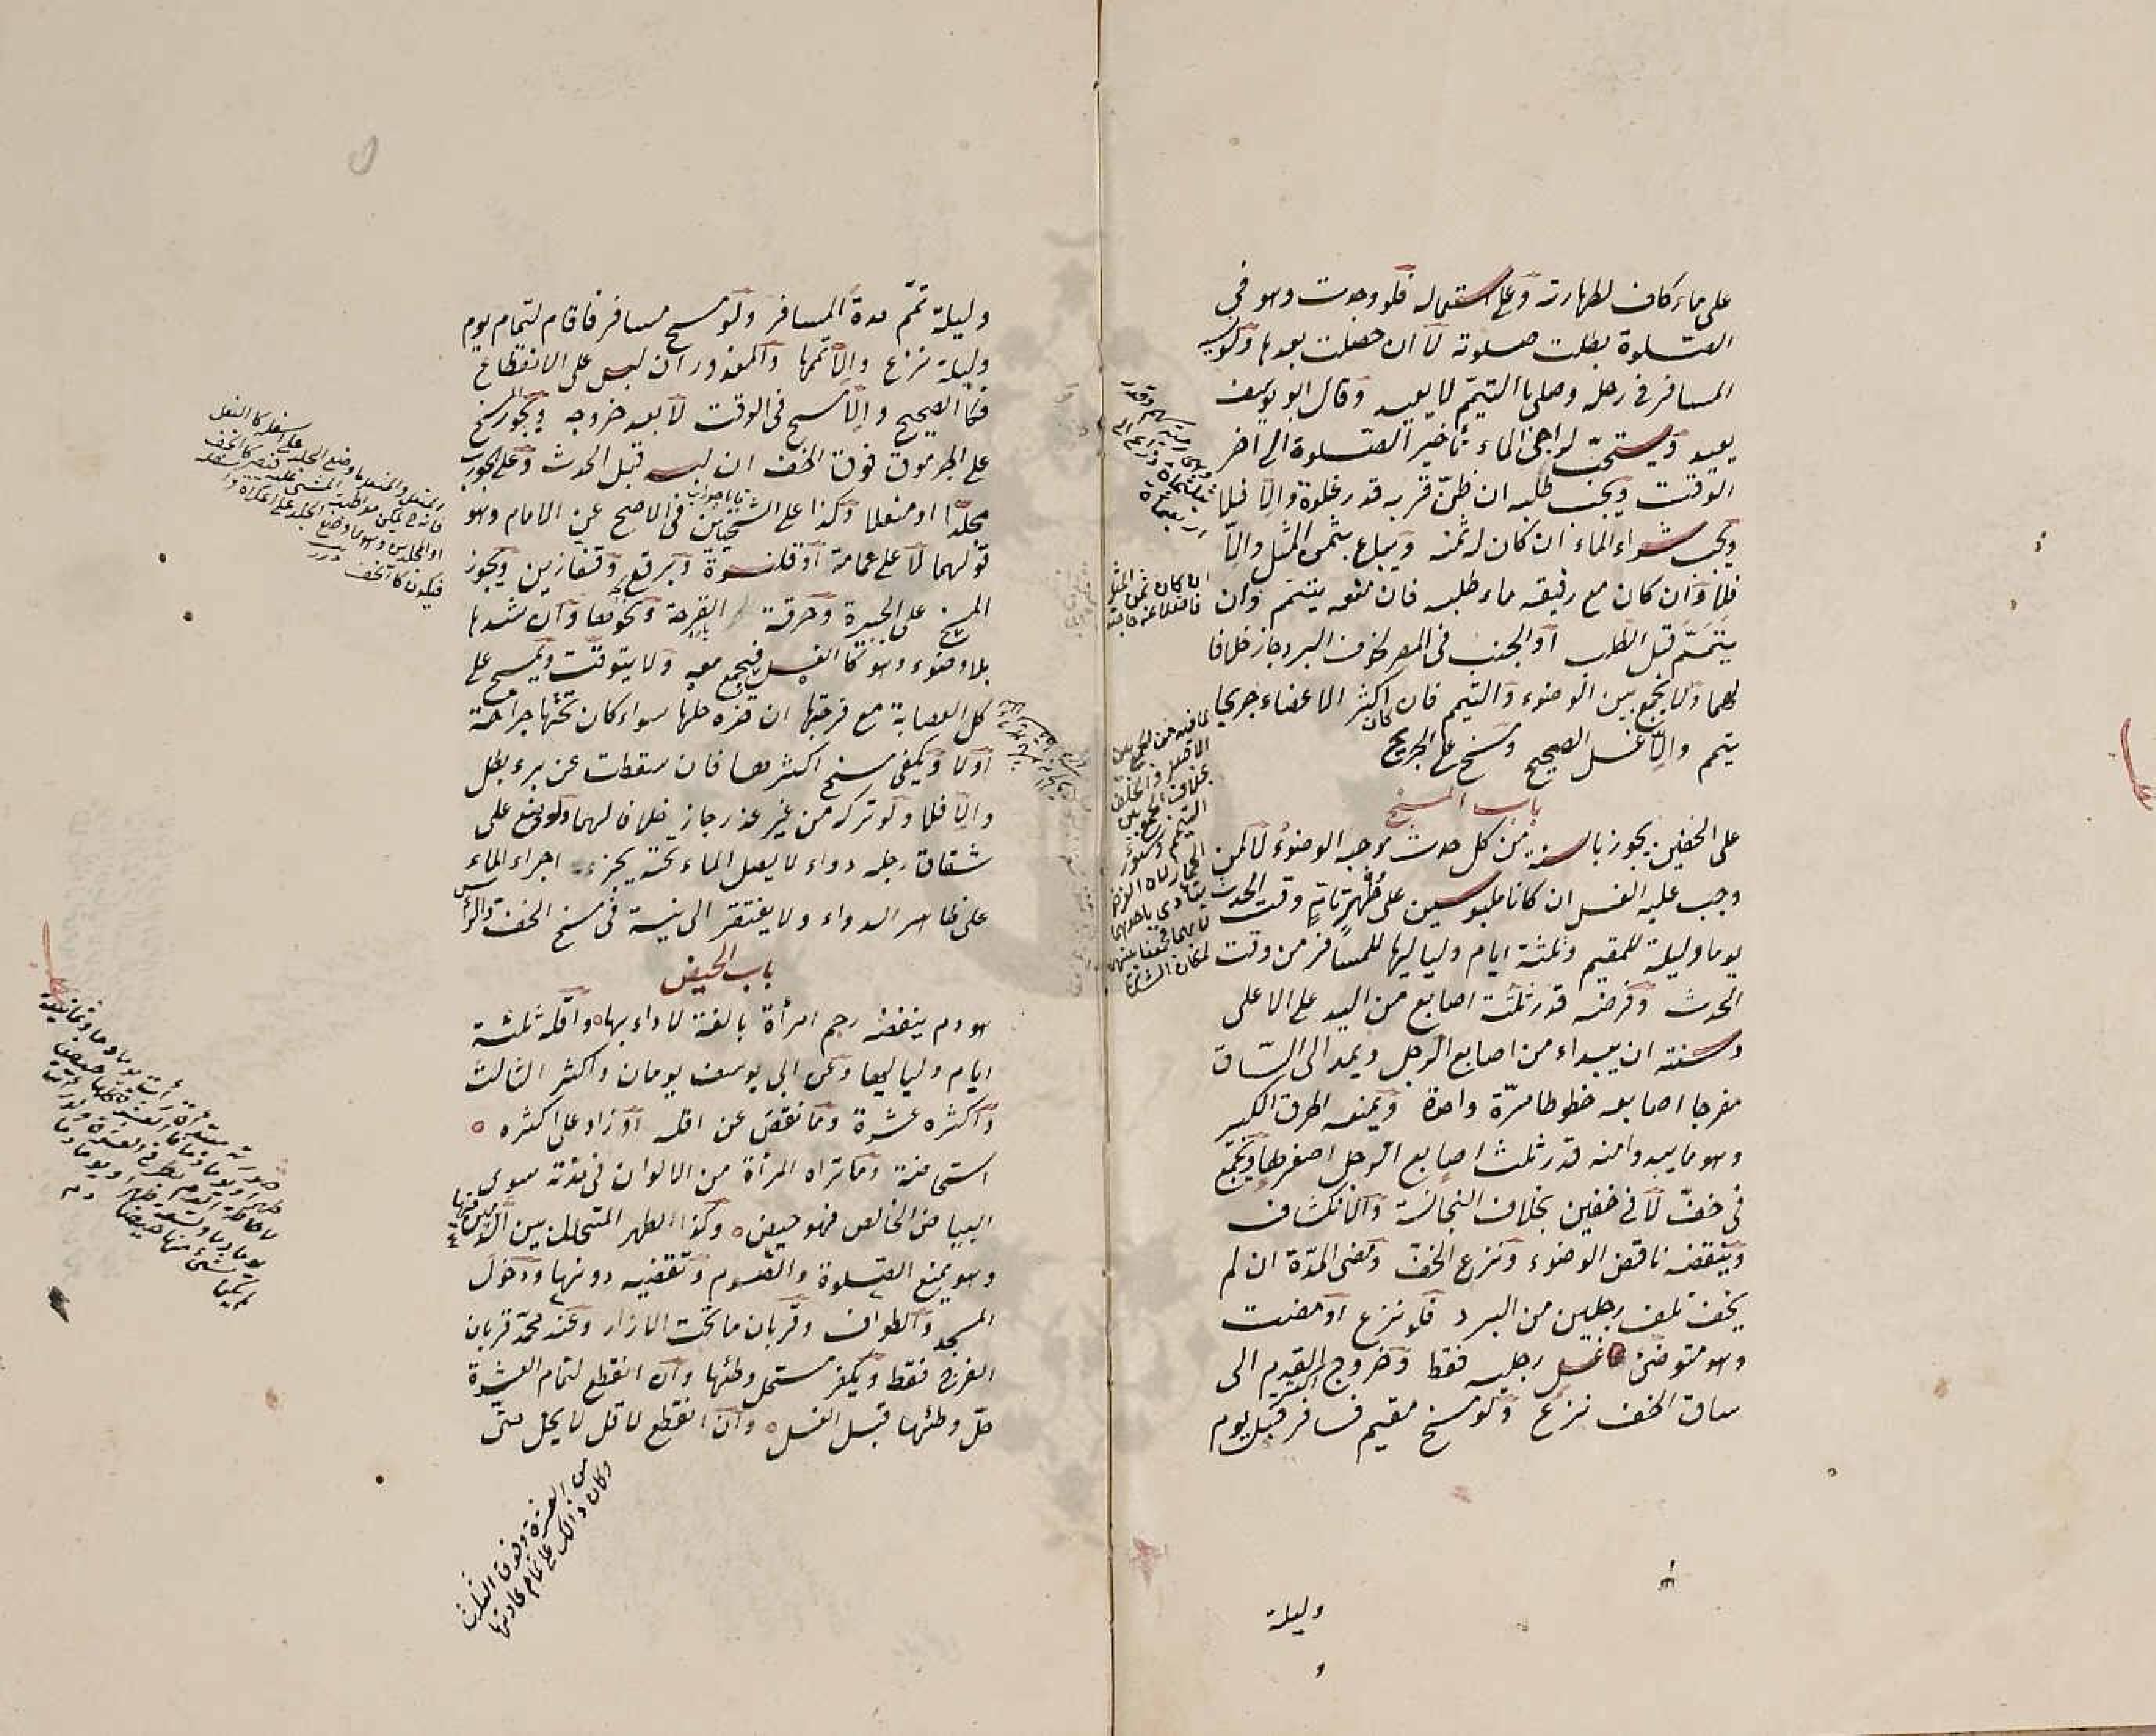 على ماء كاف لطهارته وعلى استعماله فلو وجدت وهو في
الصلوة بطلت صلوته لا ان حصلت بعدها ولو نسيه
المسافر في رحله وصلى بالتيمّم لا يعيد وقال ابو يوسف
يعيد ويستحبّ لراجى الماء تأخير الصلوة الى اخر
الوقت ويجب طلبه ان ظنّ قربه قدر غلوة والّا فلا
ويجب شراء الماء ان كان له ثمنه ويباع بثمن المثل والّا
فلا وان كان مع رفيقه ماء طلبه فان منعه يتيمم وان
يتيمّم قبل الطلب او الجنب في المصر لخوف البرد جاز خلافا
لهما ولا يجمع بين الوضوء والتيمم فان كان اكثر الاعضاء جريحا
يتيمم والّا غسل الصحيح ومسح على الجريح
باب المسح
على الخفين يجوز بالسنة من كل حدث موجبه الوضوء لا لمن
وجب عليه الغسل ان كانا ملبوسين على طُهرٍ تامّ وقت الحدث
يوما وليلة للمقيم وثلثة ايام ولياليها للمسافر من وقت
الحدث وفرضه قدر ثلثة اصابع من اليد على الاعلى
وسنته ان يبداء من اصابع الرجل ويمد الى السّاق
مفرجا اصابعه خطوطا مرّة واحدة ويمنعه الخرق الكبير
وهو ما يبدوا منه قدر ثلث اصابع الرجل اصغرها ويجمع
في خفّ لا في خفين بخلاف النجاسة والانكشاف
وينقضه ناقض الوضوء ونزع الخفّ ومضى المدّة ان لم
يخف تلف رجليه من البرد فلو نزع او مضت
وهو متوضئ غسل رجليه فقط وخروج اكثر القدم الى
ساق الخف نزع ولو مسح مقيم فسافر قبل يوم
وليلة
وهي رمية سهم وقدر
ثلثمائة ذراع الى
اربعمائة
ان كان ثمن المثل
فاضلا عن حاجته
لما فيه من الجمع بين
الاصل والخلف
بخلاف الجمع بين
التيمم وسؤر
الحمار لان الفرض
يتأدى باحدهما
لا بهما فجمعنا بينهما
لمكان الشك
وليلة تمّم مدة المسافر ولو مسح مسافر فاقام لتمام يوم
وليلة نزع والّا تمّمها والمعذور ان لبس على الانقطاع
فكا الصحيح والّا مسح في الوقت لا بعد خروجه ويجوز المسح
على الجرموق فوق الخف ان لبسه قبل الحدث وعلى الجورب
مجلدا او منعلا وكذا على الثخينين في الاصح عن الامام وهو
قولهما لا على عمامة او قلنسوة وبرقع وقفازين ويجوز
المسح على الجبيرة وخرقة القرحة ونحوها وان شدها
بلا وضوء وهو كا الغسل فيجمع معه ولا يتوقت ويمسح على
كل العصابة مع فرجتها ان ضره حلها سواء كان تحتها جراحة
اولا ويكفى مسح اكثرها فان سقطت عن برء بطل
والّا فلا ولو تركه من غير عذر جاز خلافا لهما ولو وضع على
شقاق رجله دواء لا يصل الماء تحته يجزءه اجراء الماء
على ظاهر الدواء ولا يفتقر الى نية في مسح الخف والرأس
باب الحيض
هو دم ينفضه رحم امرأة بالغة لا داء بها واقله ثلثة
ايام ولياليها وعن ابي يوسف يومان واكثر الثالث
واكثره عشرة وما نقص عن اقله او زاد على اكثره
استحاضة وما تراه المرأة من الالوان في مدّته سوى
البياض الخالص فهو حيض وكذا الطهر المتخلل بين الدمين فيها
وهو يمنع الصلوة والصوم وتقضيه دونها ودخول
المسجد والطواف وقربان ما تحت الازار وعند محمّد قربان
الفرج فقط ويكفر مستحل وطئها وان انقطع لتمام العشرة
حلّ وطئها قبل الغسل وان انقطع لاقل لا يحل حتى
من العشرة وفوق الثلث
وكان ذالك على تمام عادتها